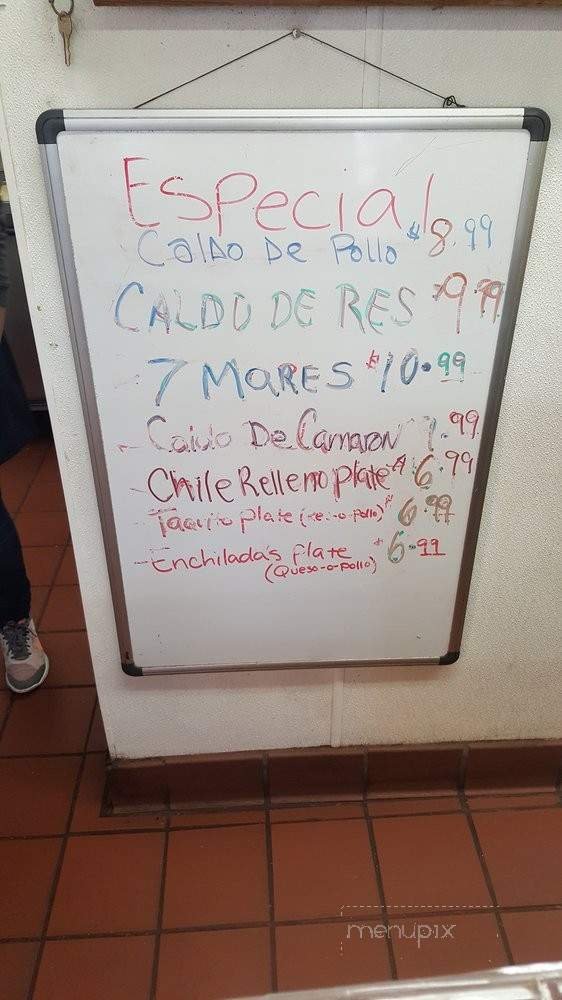 Especial
Caldo De Pollo $8.99
CALDO DE RES $9.99
7 MARES $10.99
Caldo De Camaron .99
Chile Relleno plate $6.99
Taquito plate (res-o-pollo) $6.99
Enchiladas plate $6.99
(Queso-o-pollo)
menupix